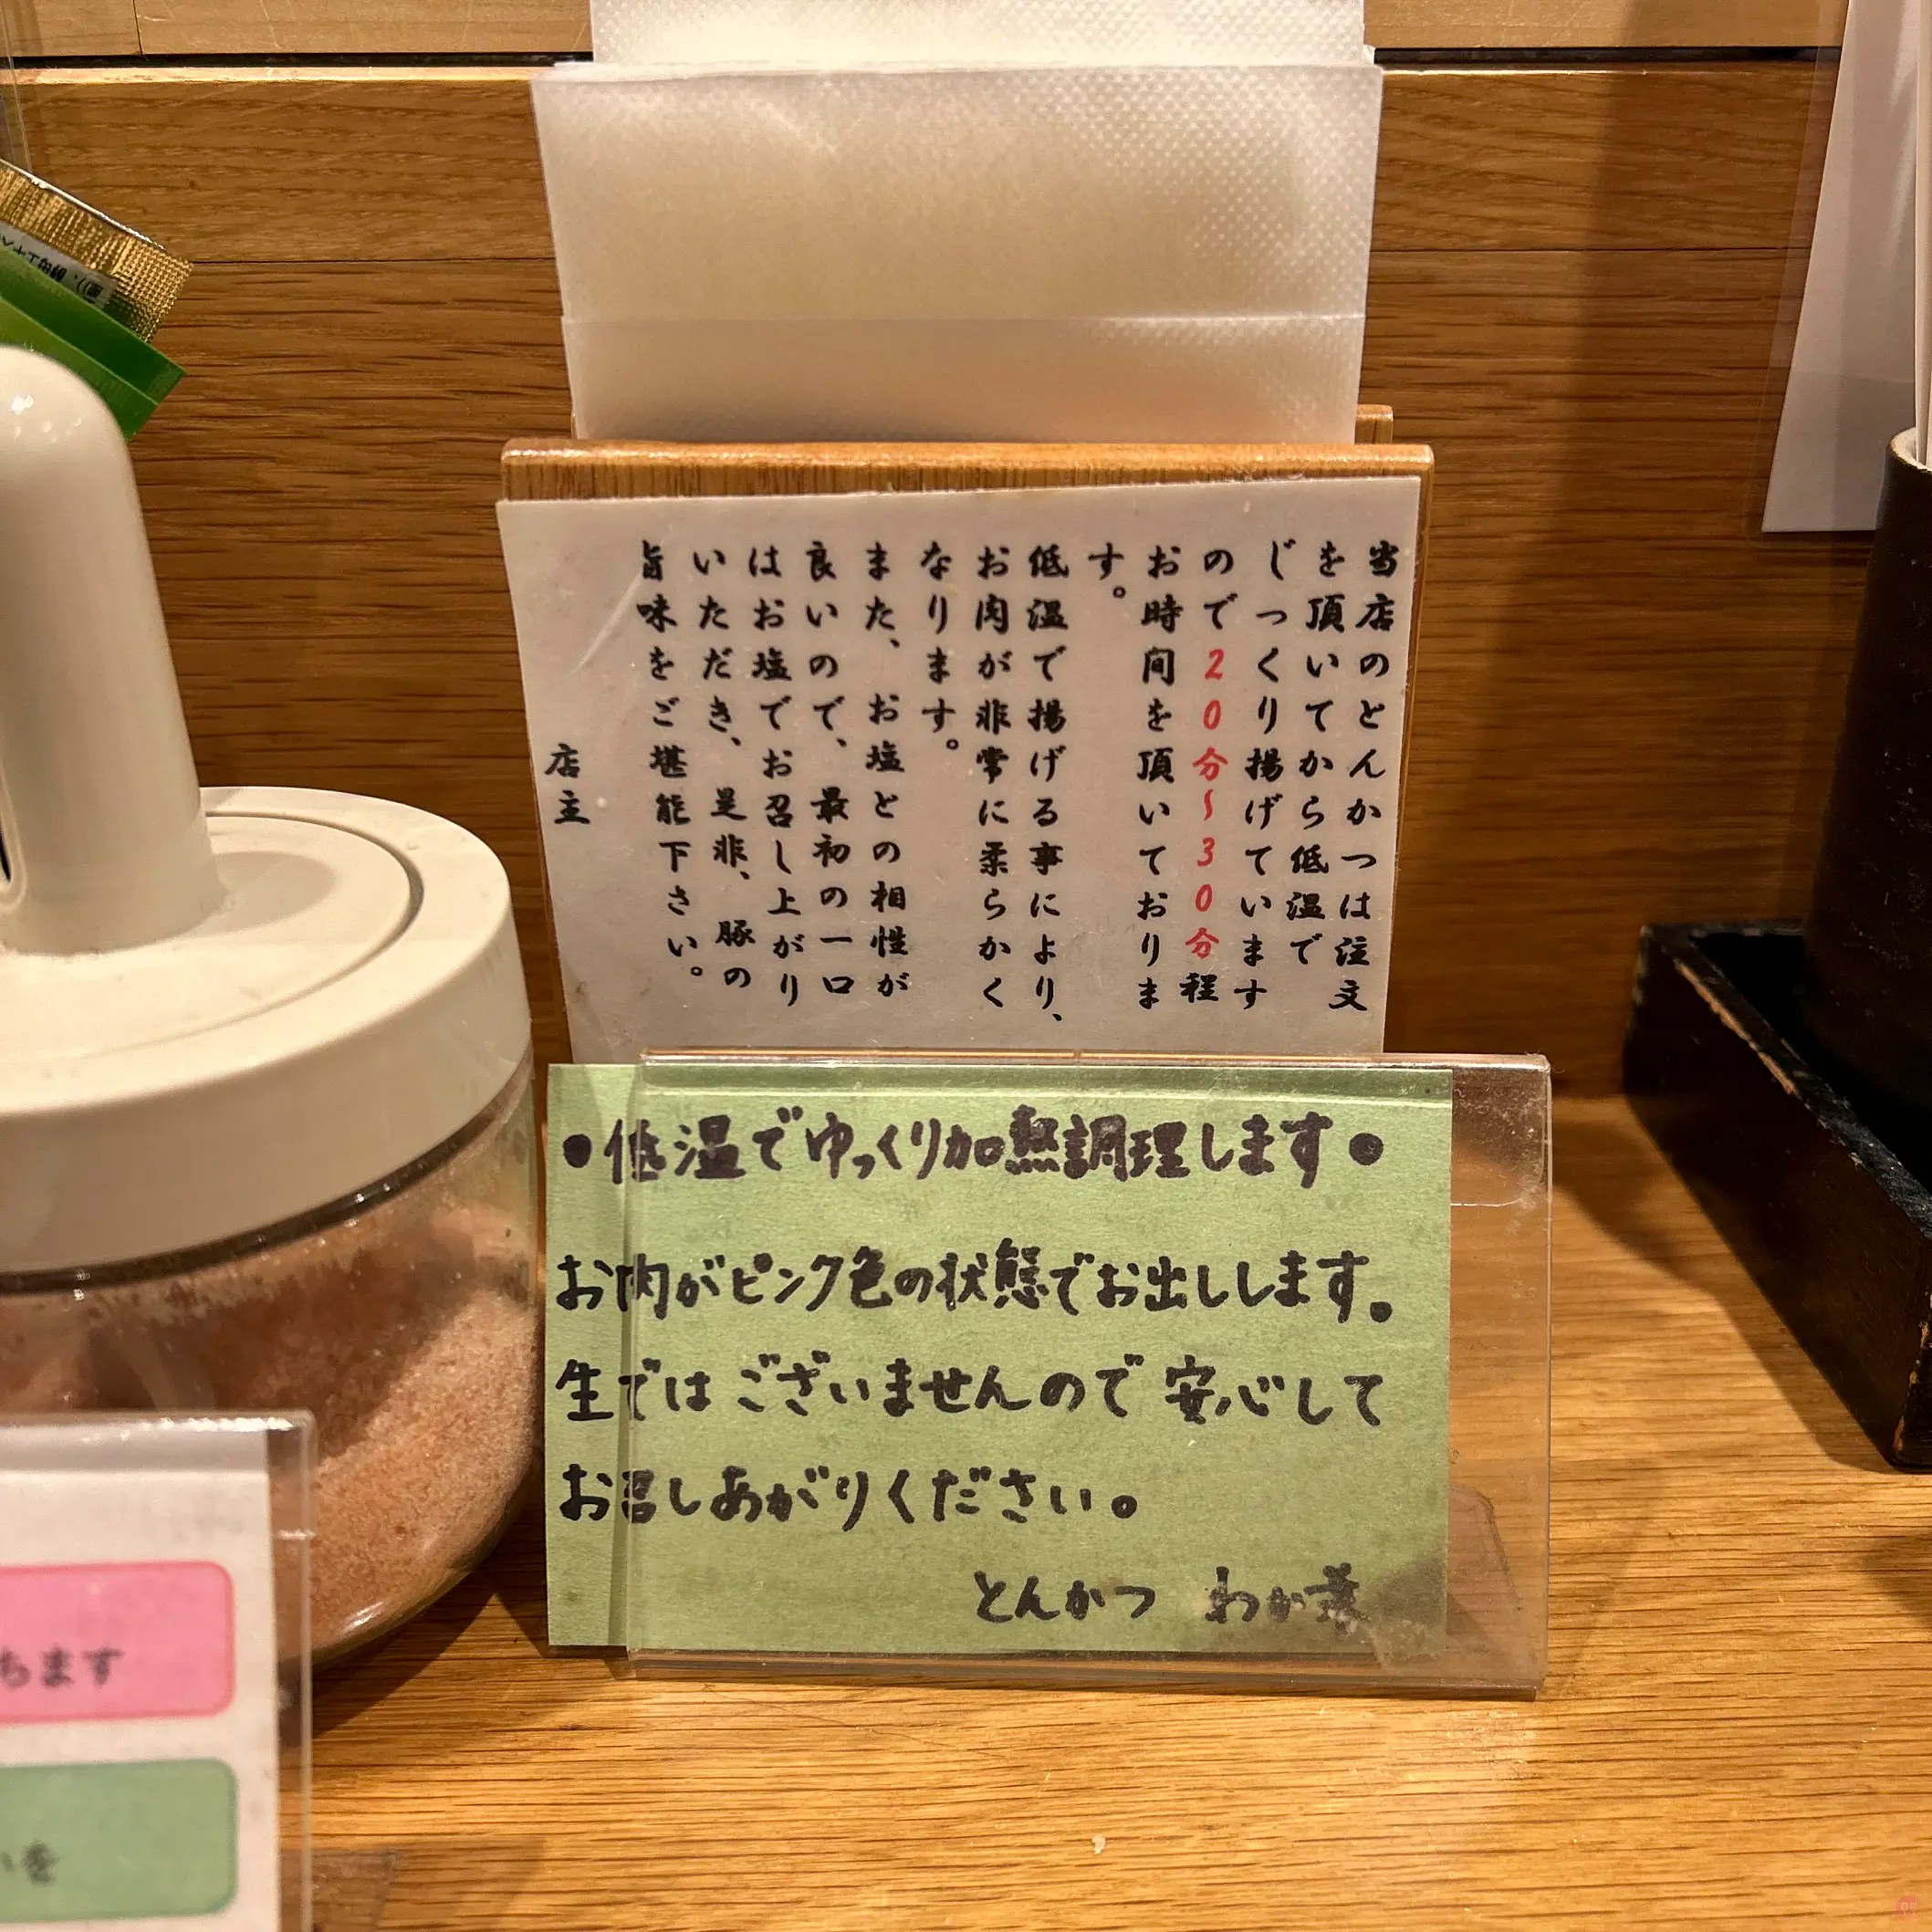 当店のとんかつは注文
を頂いてから低温で
じっくり揚げています
ので20分〜30分程
お時間を頂いておりま
す。
低温で揚げる事により、
お肉が非常に柔らかく
なります。
また、お塩との相性が
良いので、最初の一口
はお塩でお召し上がり
いただき、是非、豚の
旨味をご堪能下さい。
店主
●低温でゆっくり加熱調理します●
お肉がピンク色の状態でお出しします。
生ではございませんので安心して
お召しあがりください。
とんかつ わか葉
ちます
いを